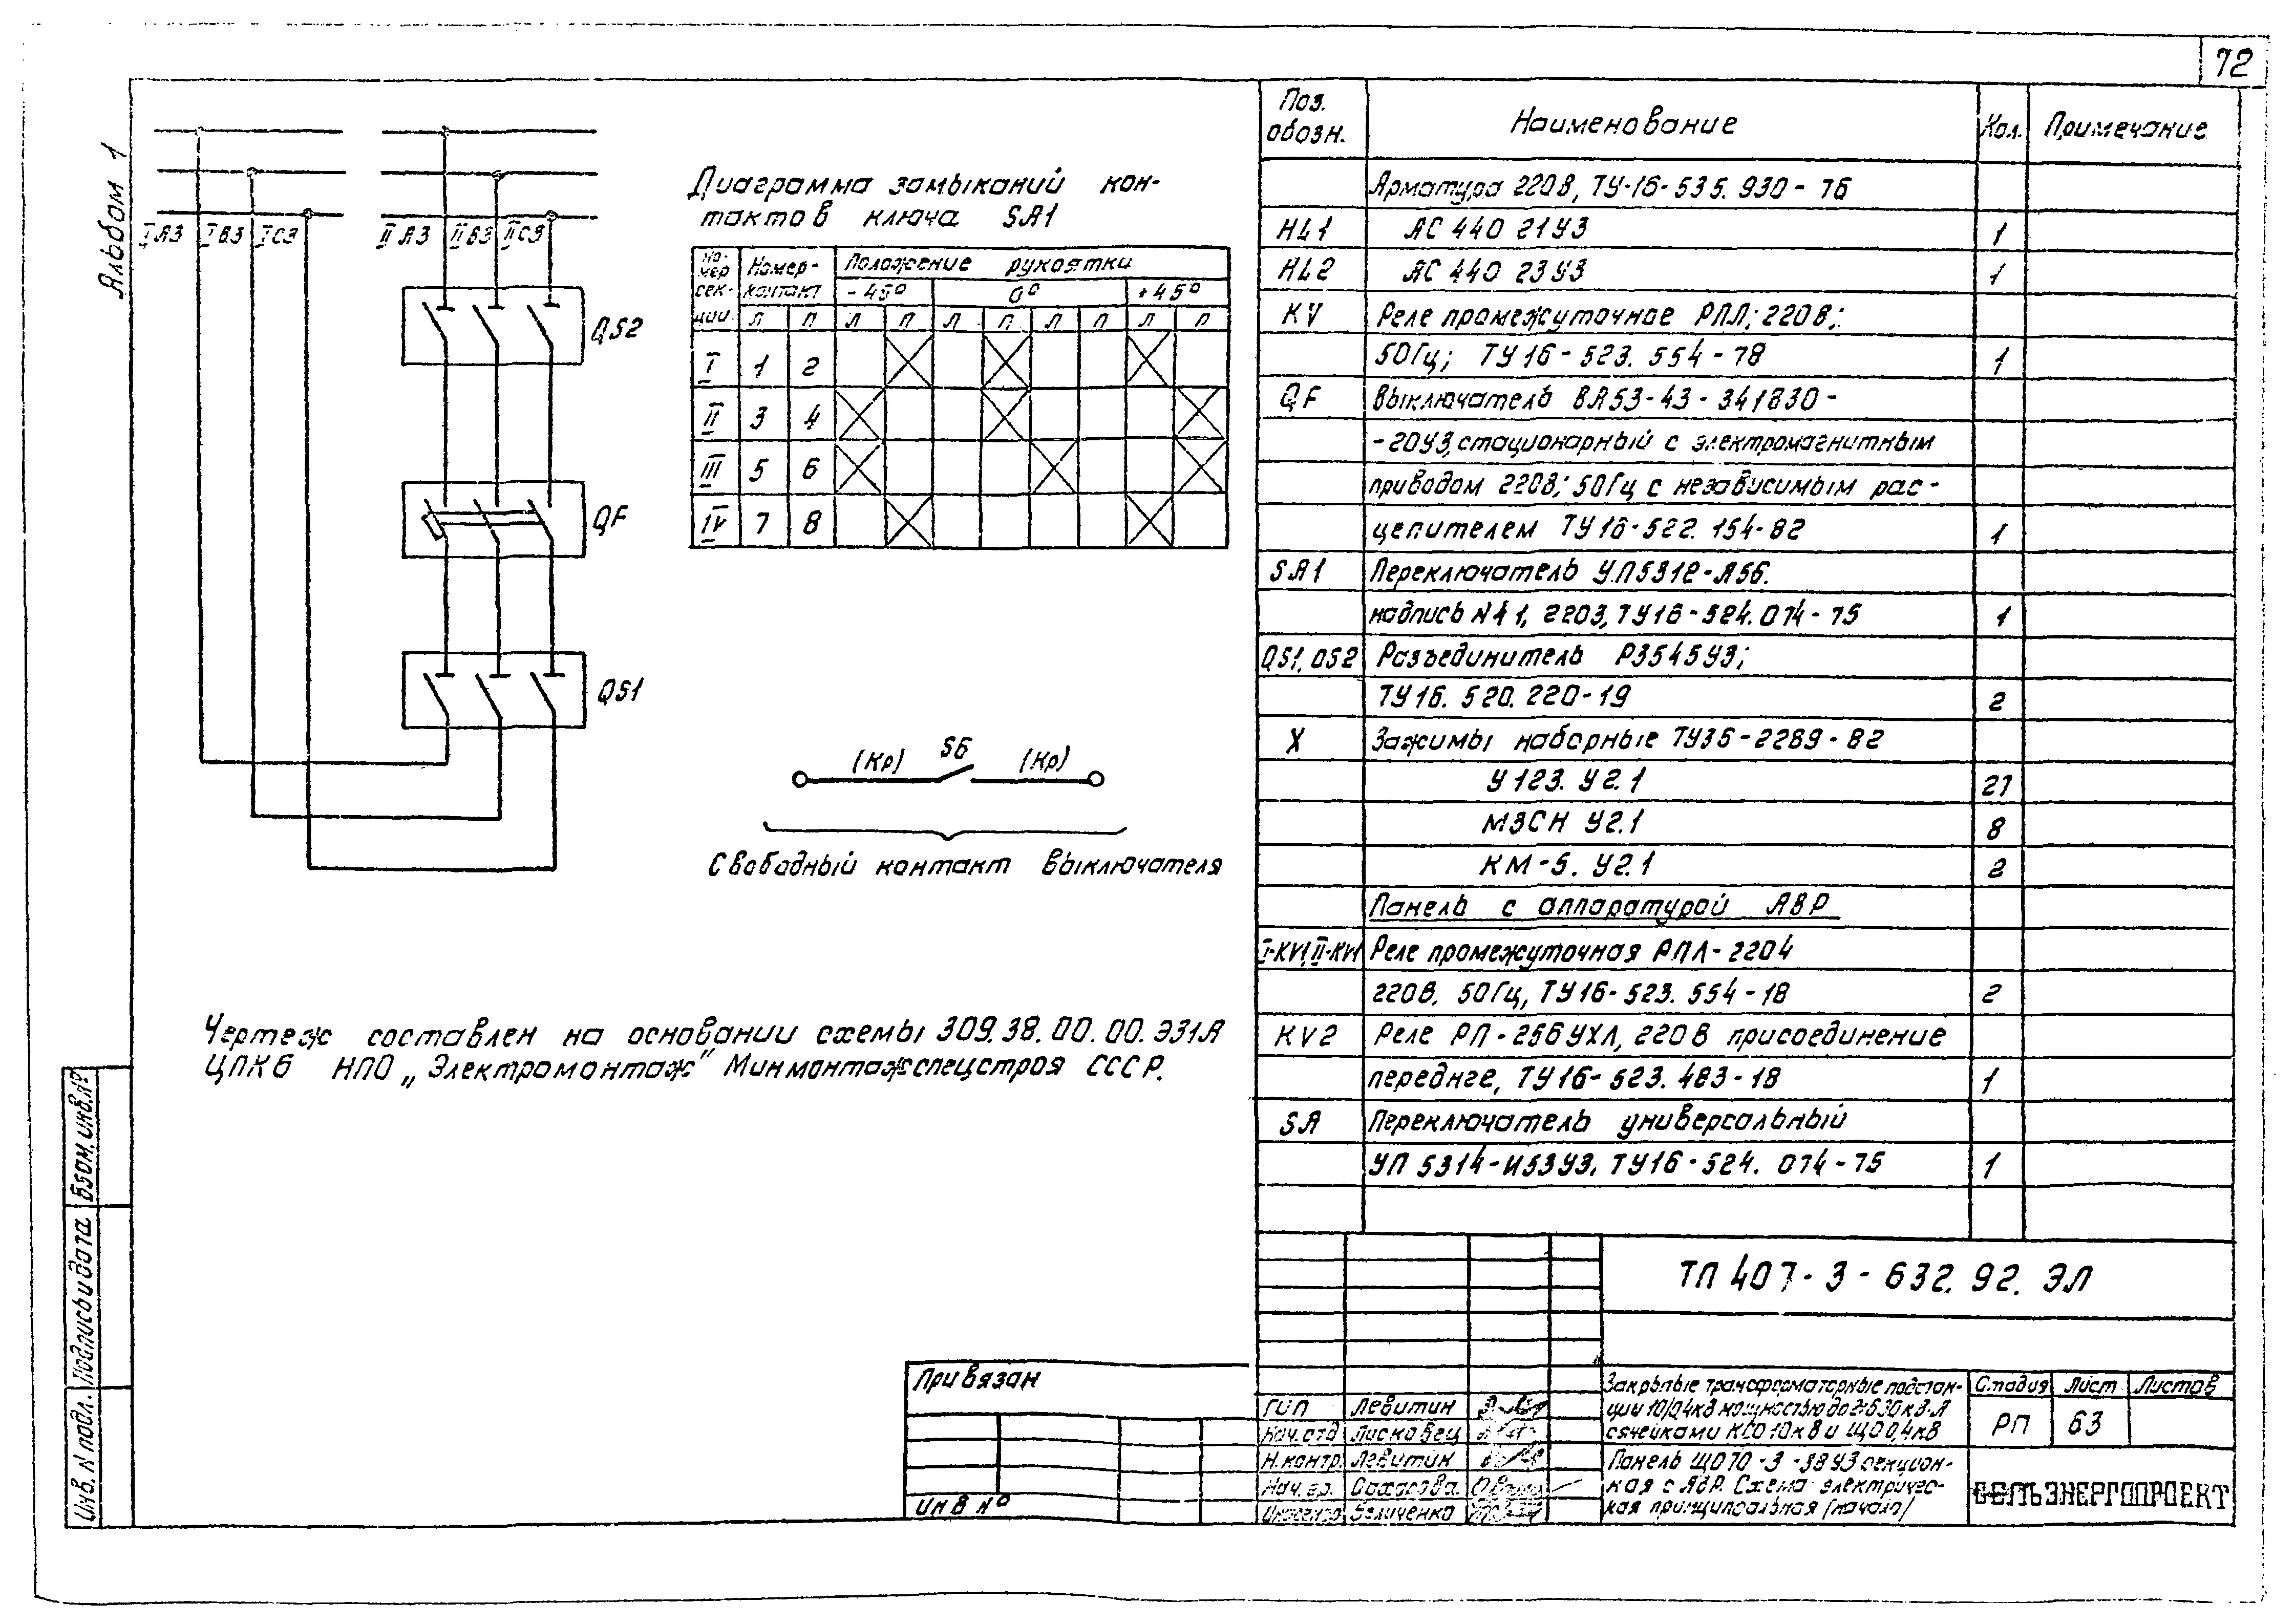 72
Альбом 1
IА3 IВ3 IС3 IIА3 IIВ3 IIС3
QS2
QF
QS1
Диаграмма замыканий кон-
тактов ключа SA1
Но-
мер
сек-
ции
Номер
контакт
Положение рукоятки
-45° 0° +45°
Л П Л П Л П Л П Л П
I 1 2
II 3 4
III 5 6
IV 7 8
(Кр) S6 (Кр)
Свободный контакт выключателя
Чертеж составлен на основании схемы 309.38.00.00.Э31А
ЦПКБ НПО „Электромонтаж" Минмонтажспецстроя СССР.
Поз. обозн. Наименование Кол. Примечание
Арматура 220В, ТУ-16-535.930-76
HL1 АС 440 21У3 1
HL2 АС 440 23У3 1
KV Реле промежуточное РПЛ; 220В;
50Гц; ТУ16-523.554-78 1
QF Выключатель ВА53-43-341830-
-20У3, стационарный с электромагнитным
приводом 220В; 50Гц с независимым рас-
цепителем ТУ16-522.154-82 1
SA1 Переключатель УП5312-А56.
надпись №41, 2203, ТУ16-524.074-75 1
QS1, QS2 Разъединитель Р3545У3;
ТУ16.520.220-19 2
X Зажимы наборные ТУ36-2289-82
У123.У2.1 21
МЗСН У2.1 8
КМ-5.У2.1 2
Панель с аппаратурой АВР
I-KV1, II-KV1 Реле промежуточная РПЛ-2204
220В, 50Гц, ТУ16-523.554-18 2
KV2 Реле РП-256УХЛ, 220В присоединение
переднге, ТУ16-523.483-18 1
SA Переключатель универсальный
УП 5314-И53У3, ТУ16-524.074-75 1
ТП 407-3-632.92.ЭЛ
Привязан
Инв №
ГИП Левитин
Нач.отд Лисковец
Н.контр. Левитин
Нач.гр. Сахарова
Инженер Величенко
Закрытые трансформаторные подстан-
ции 10/0,4кВ мощностью до 2х630кВ·А
с ячейками КСО 10кВ и ЩО 0,4кВ
Панель ЩО70-3-38У3 секцион-
ная с АВР. Схема электричес-
кая принципиальная (начало)
Стадия Лист Листов
РП 63
СЕЛЬЭНЕРГОПРОЕКТ
Инв. N подл. Подпись и дата Взам. инв. №